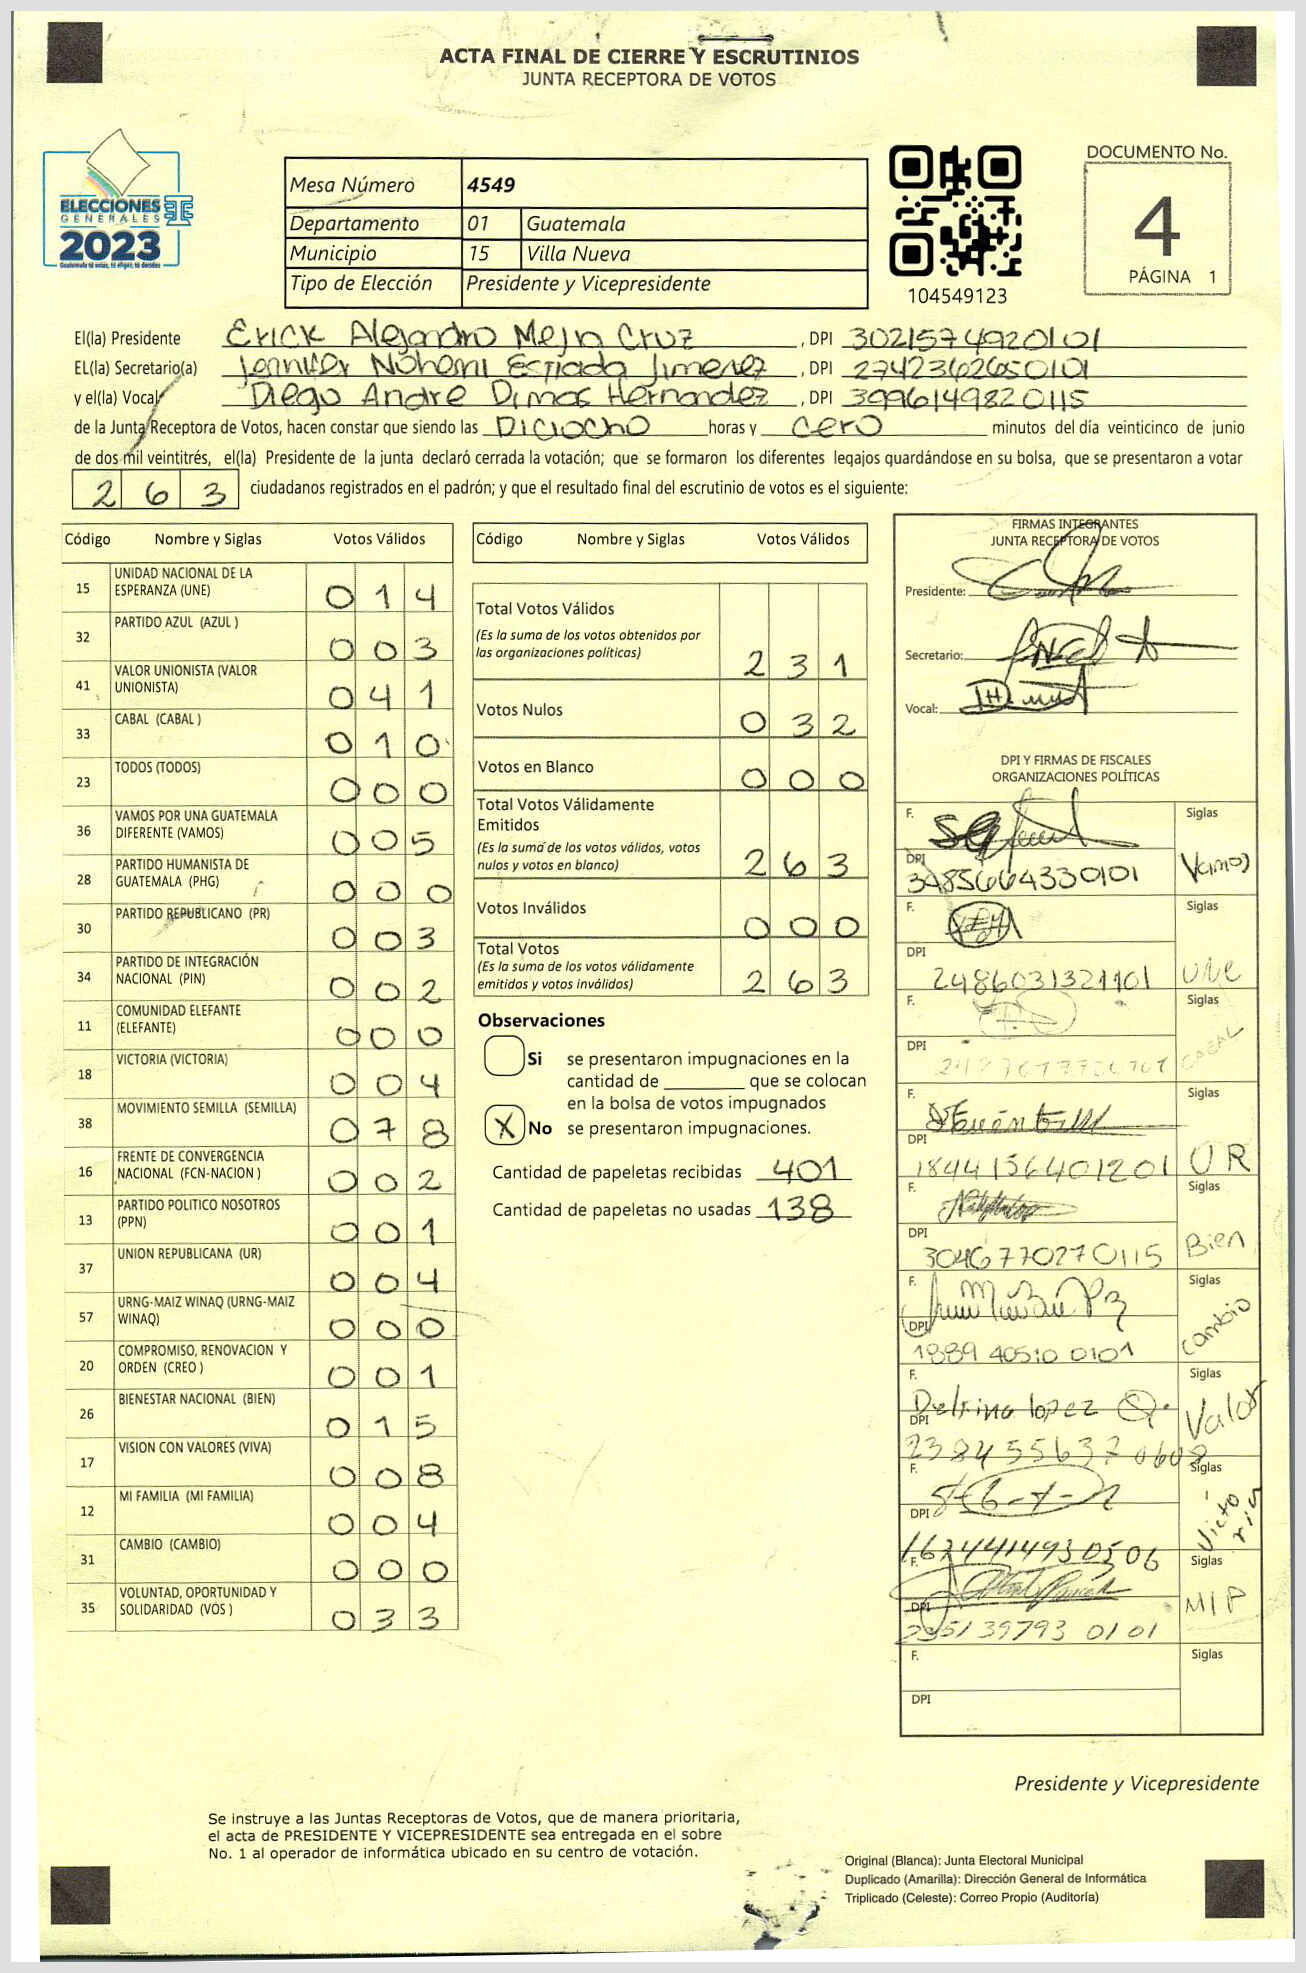 ACTA FINAL DE CIERRE Y ESCRUTINIOS
JUNTA RECEPTORA DE VOTOS
ELECCIONES
GENERALES
2023
Guatemala tú estás, tú eliges, tú decides
Mesa Número 4549
Departamento 01 Guatemala
Municipio 15 Villa Nueva
Tipo de Elección Presidente y Vicepresidente
104549123
DOCUMENTO No.
4
PÁGINA 1
El(la) Presidente Erick Alejandro Mejia Cruz, DPI 3021574920101
EL(la) Secretario(a) Jennifer Nohemi Estrada Jimenez, DPI 2742362650101
y el(la) Vocal Diego Andre Dimas Hernandez, DPI 3996149820115
de la Junta Receptora de Votos, hacen constar que siendo las Diciocho horas y cero minutos del día veinticinco de junio
de dos mil veintitrés, el(la) Presidente de la junta declaró cerrada la votación; que se formaron los diferentes legajos guardándose en su bolsa, que se presentaron a votar
263 ciudadanos registrados en el padrón; y que el resultado final del escrutinio de votos es el siguiente:
Código Nombre y Siglas Votos Válidos
15 UNIDAD NACIONAL DE LA ESPERANZA (UNE) 014
32 PARTIDO AZUL (AZUL ) 003
41 VALOR UNIONISTA (VALOR UNIONISTA) 041
33 CABAL (CABAL ) 010
23 TODOS (TODOS) 000
36 VAMOS POR UNA GUATEMALA DIFERENTE (VAMOS) 005
28 PARTIDO HUMANISTA DE GUATEMALA (PHG) 000
30 PARTIDO REPUBLICANO (PR) 003
34 PARTIDO DE INTEGRACIÓN NACIONAL (PIN) 002
11 COMUNIDAD ELEFANTE (ELEFANTE) 000
18 VICTORIA (VICTORIA) 004
38 MOVIMIENTO SEMILLA (SEMILLA) 078
16 FRENTE DE CONVERGENCIA NACIONAL (FCN-NACION ) 002
13 PARTIDO POLITICO NOSOTROS (PPN) 001
37 UNION REPUBLICANA (UR) 004
57 URNG-MAIZ WINAQ (URNG-MAIZ WINAQ) 000
20 COMPROMISO, RENOVACION Y ORDEN (CREO ) 001
26 BIENESTAR NACIONAL (BIEN) 015
17 VISION CON VALORES (VIVA) 008
12 MI FAMILIA (MI FAMILIA) 004
31 CAMBIO (CAMBIO) 000
35 VOLUNTAD, OPORTUNIDAD Y SOLIDARIDAD (VOS ) 033
Código Nombre y Siglas Votos Válidos
Total Votos Válidos
(Es la suma de los votos obtenidos por
las organizaciones políticas) 231
Votos Nulos 032
Votos en Blanco 000
Total Votos Válidamente
Emitidos
(Es la suma de los votos válidos, votos
nulos y votos en blanco) 263
Votos Inválidos 000
Total Votos
(Es la suma de los votos válidamente
emitidos y votos inválidos) 263
Observaciones
Si se presentaron impugnaciones en la
cantidad de ________ que se colocan
en la bolsa de votos impugnados
X No se presentaron impugnaciones.
Cantidad de papeletas recibidas 401
Cantidad de papeletas no usadas 138
FIRMAS INTEGRANTES
JUNTA RECEPTORA DE VOTOS
Presidente:
Secretario:
Vocal:
DPI Y FIRMAS DE FISCALES
ORGANIZACIONES POLÍTICAS
F. Siglas
DPI 3485664330101 Vamos
F. Siglas
DPI 2486031321101 UNE
F. Siglas
DPI CABAL
F. Siglas
DPI 1844156401201 UR
F. Siglas
DPI 3046770270115 Bien
F. Siglas
DPI 1889 40510 0101 cambio
F. Delfina lopez Siglas
DPI 2384556370608 Valor
F. Siglas
DPI 1634414930506 Victoria
F. Siglas
DPI 235139793 0101 MIP
F. Siglas
DPI
Presidente y Vicepresidente
Se instruye a las Juntas Receptoras de Votos, que de manera prioritaria,
el acta de PRESIDENTE Y VICEPRESIDENTE sea entregada en el sobre
No. 1 al operador de informática ubicado en su centro de votación.
Original (Blanca): Junta Electoral Municipal
Duplicado (Amarilla): Dirección General de Informática
Triplicado (Celeste): Correo Propio (Auditoría)